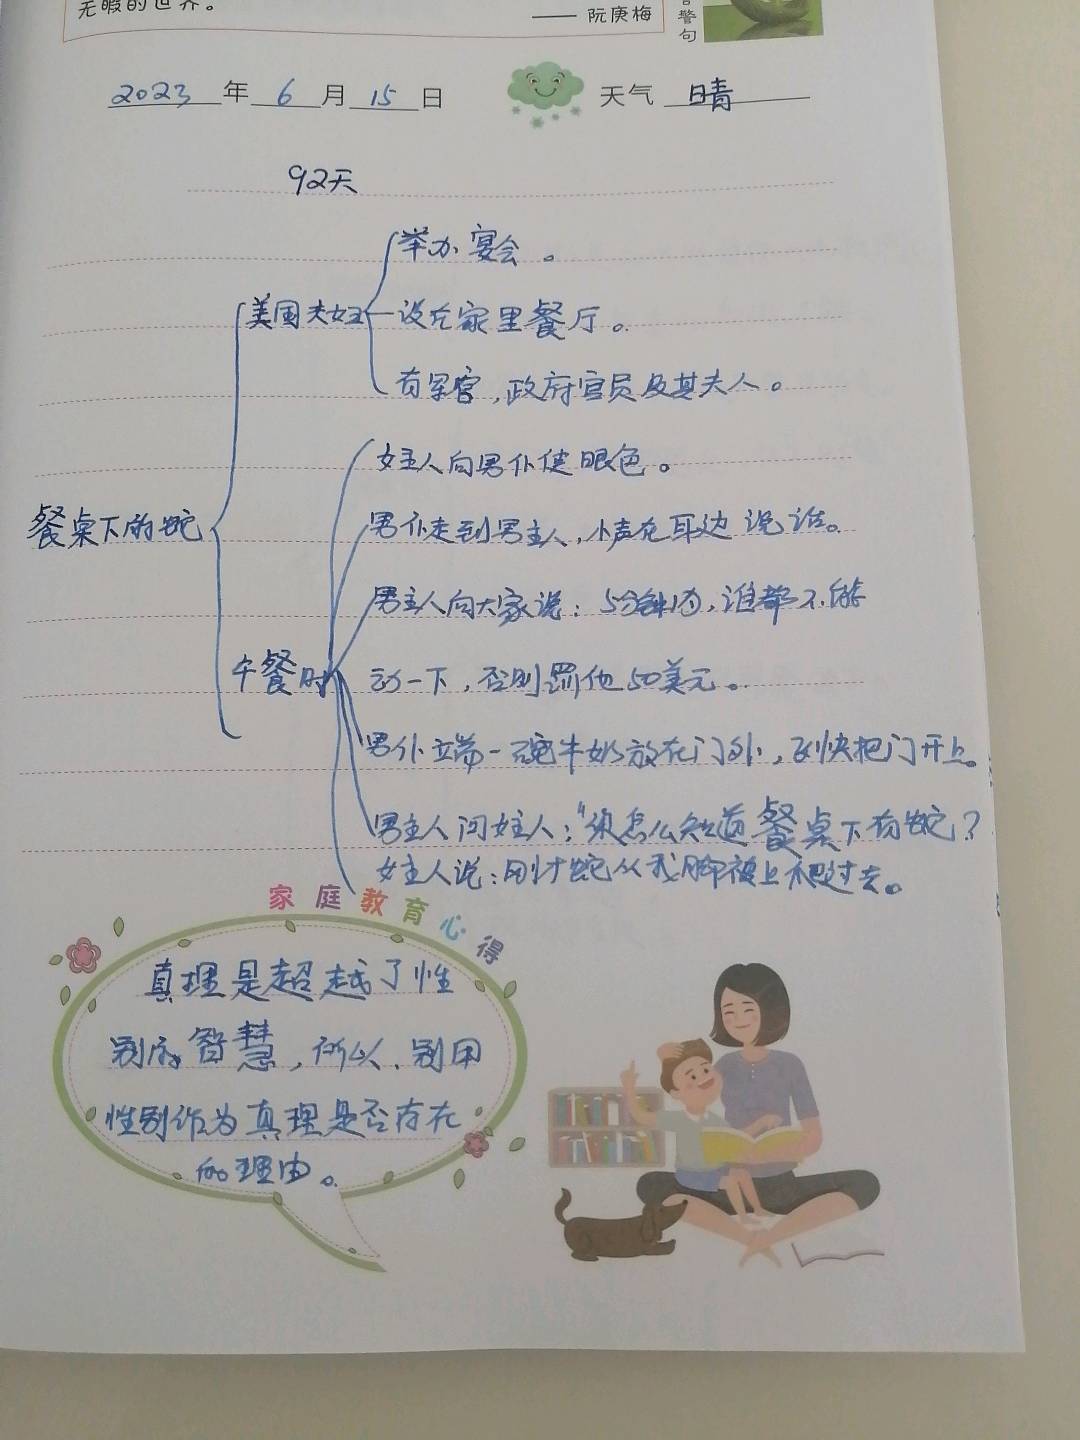 无暇的世界。
—— 阮庚梅
警句
2023年6月15日 天气 晴
92天
举办宴会。
美国夫妇 设在家里餐厅。
有军官,政府官员及其夫人。
女主人向男仆使眼色。
餐桌下的蛇
男仆走到男主人,小声在耳边说话。
男主人向大家说:5分钟内,谁都不能
午餐时 动一下,否则罚他50美元。
男仆立端一碗牛奶放在门外,飞快把门开上。
男主人问女主人:"你怎么知道餐桌下有蛇?
女主人说:刚才蛇从我脚被上爬过去。
家庭教育心得
真理是超越了性
别的智慧,所以,别用
性别作为真理是否存在
的理由。